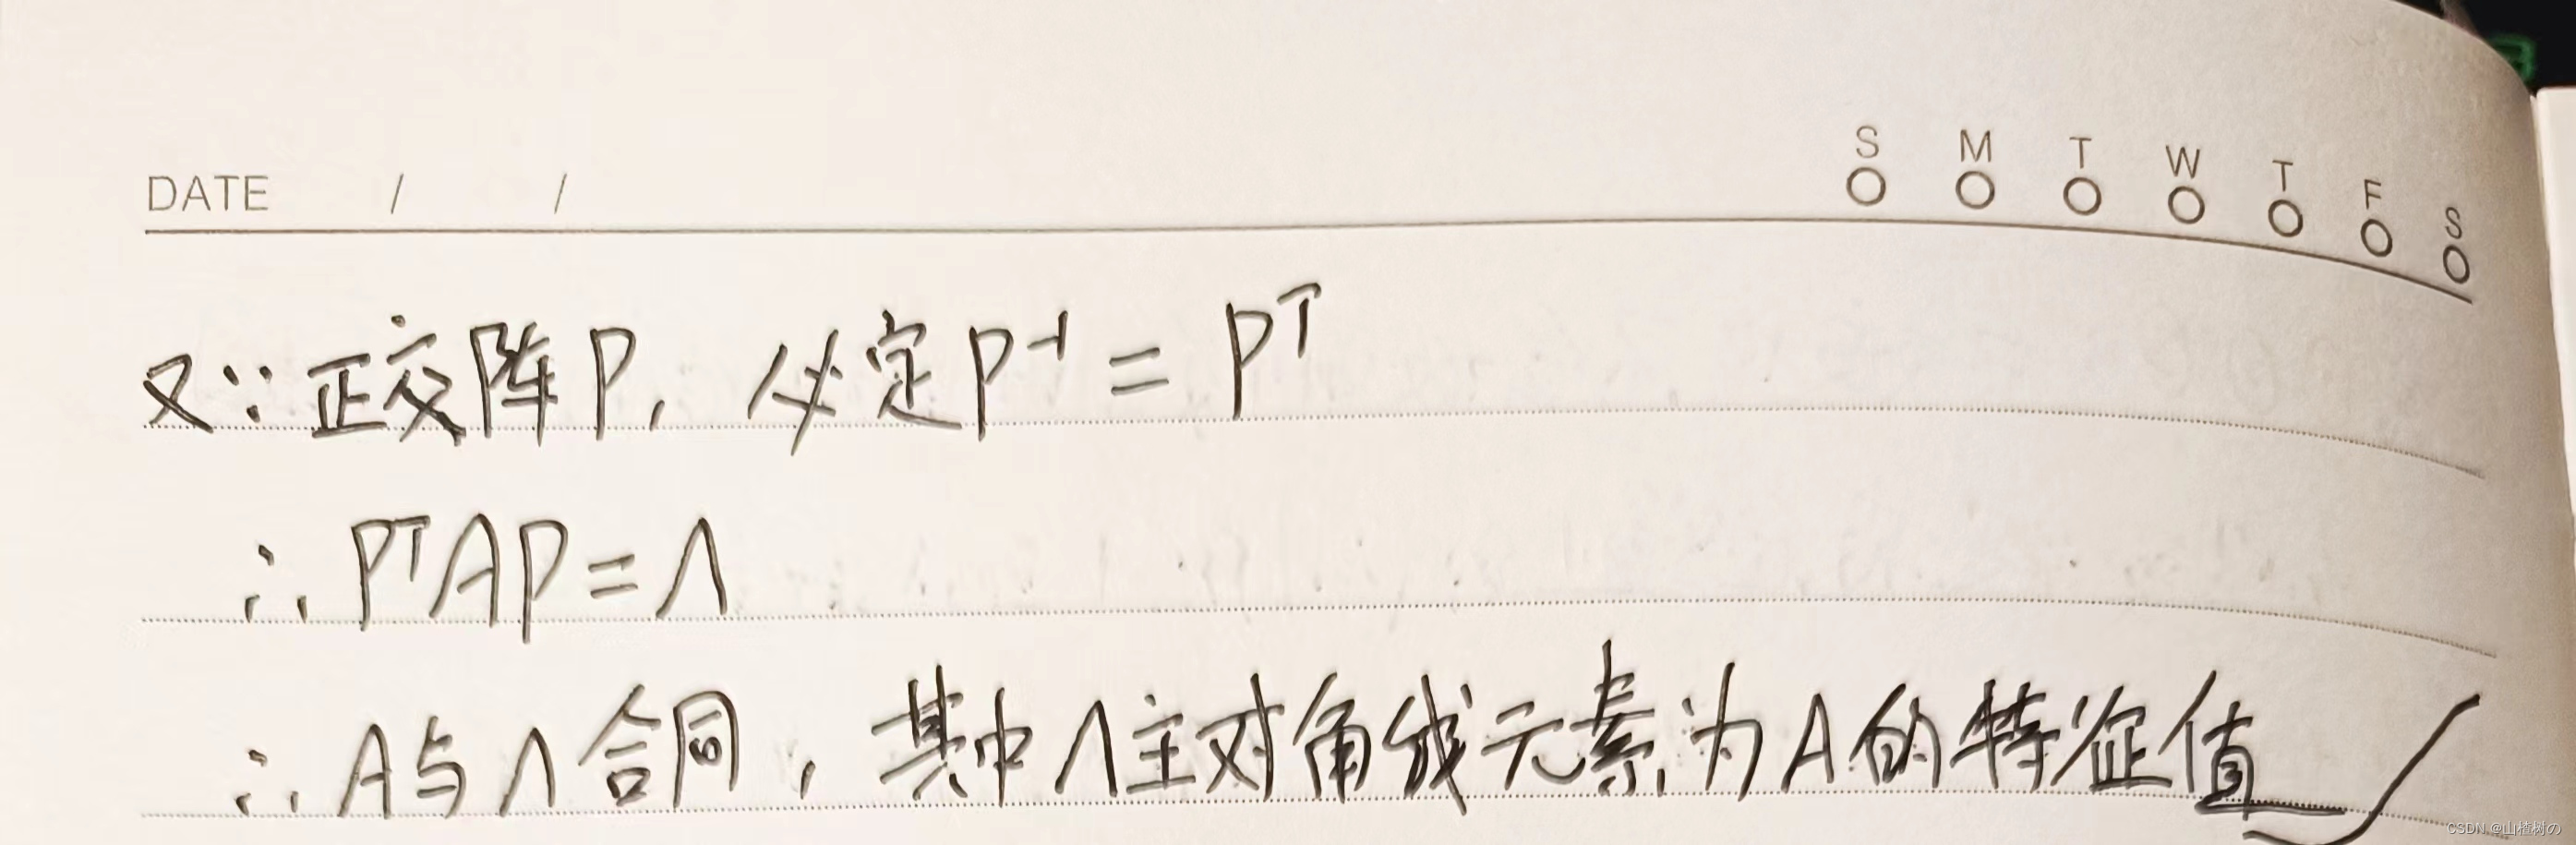 DATE / /
S M T W T F S
又∵正交阵P, 必定P⁻¹ = Pᵀ
∴ PᵀAP = Λ
∴ A与Λ合同, 其中Λ主对角线元素为A的特征值
CSDN @山楂树の